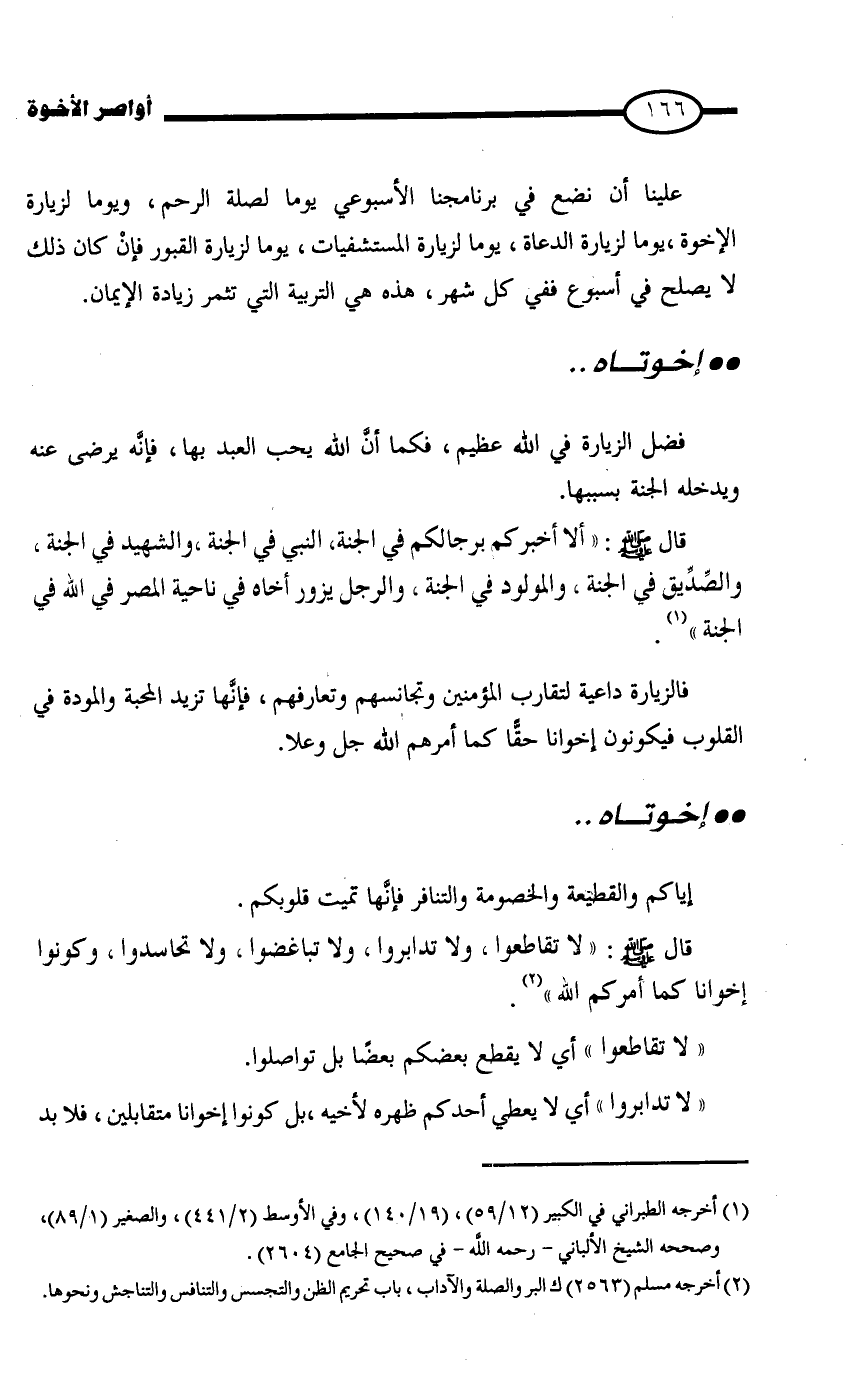 أواصر الأخوة ١٦٦
علينا أن نضع في برنامجنا الأسبوعي يوما لصلة الرحم، ويوما لزيارة
الإخوة ،يوما لزيارة الدعاة ، يوما لزيارة المستشفيات ، يوما لزيارة القبور فإنْ كان ذلك
لا يصلح في أسبوع ففي كل شهر ، هذه هي التربية التي تثمر زيادة الإيمان.
●● إخـوتـــاه ..
فضل الزيارة في الله عظيم ، فكما أنَّ الله يحب العبد بها ، فإنَّه يرضى عنه
ويدخله الجنة بسببها.
قال ﷺ : « ألا أخبركم برجالكم في الجنة، النبي في الجنة ،والشهيد في الجنة ،
والصِّدِّيق في الجنة ، والمولود في الجنة ، والرجل يزور أخاه في ناحية المصر في الله في
الجنة »(١) .
فالزيارة داعية لتقارب المؤمنين وتجانسهم وتعارفهم ، فإنَّها تزيد المحبة والمودة في
القلوب فيكونون إخوانا حقًّا كما أمرهم الله جل وعلا.
●● إخـوتـــاه ..
إياكم والقطيعة والخصومة والتنافر فإنَّها تميت قلوبكم .
قال ﷺ : « لا تقاطعوا ، ولا تدابروا ، ولا تباغضوا ، ولا تحاسدوا ، وكونوا
إخوانا كما أمركم الله »(٢) .
« لا تقاطعوا » أي لا يقطع بعضكم بعضًا بل تواصلوا.
« لا تدابروا » أي لا يعطي أحدكم ظهره لأخيه ،بل كونوا إخوانا متقابلين ، فلا بد
(١) أخرجه الطبراني في الكبير (١٢/٥٩)، (١٩/١٤٠) ، وفي الأوسط (٢/٤٤١) ، والصغير (١/٨٩)،
وصححه الشيخ الألباني - رحمه اللَّه - في صحيح الجامع (٢٦٠٤) .
(٢) أخرجه مسلم (٢٥٦٣) ك البر والصلة والآداب ، باب تحريم الظن والتجسس والتنافس والتناجش ونحوها.